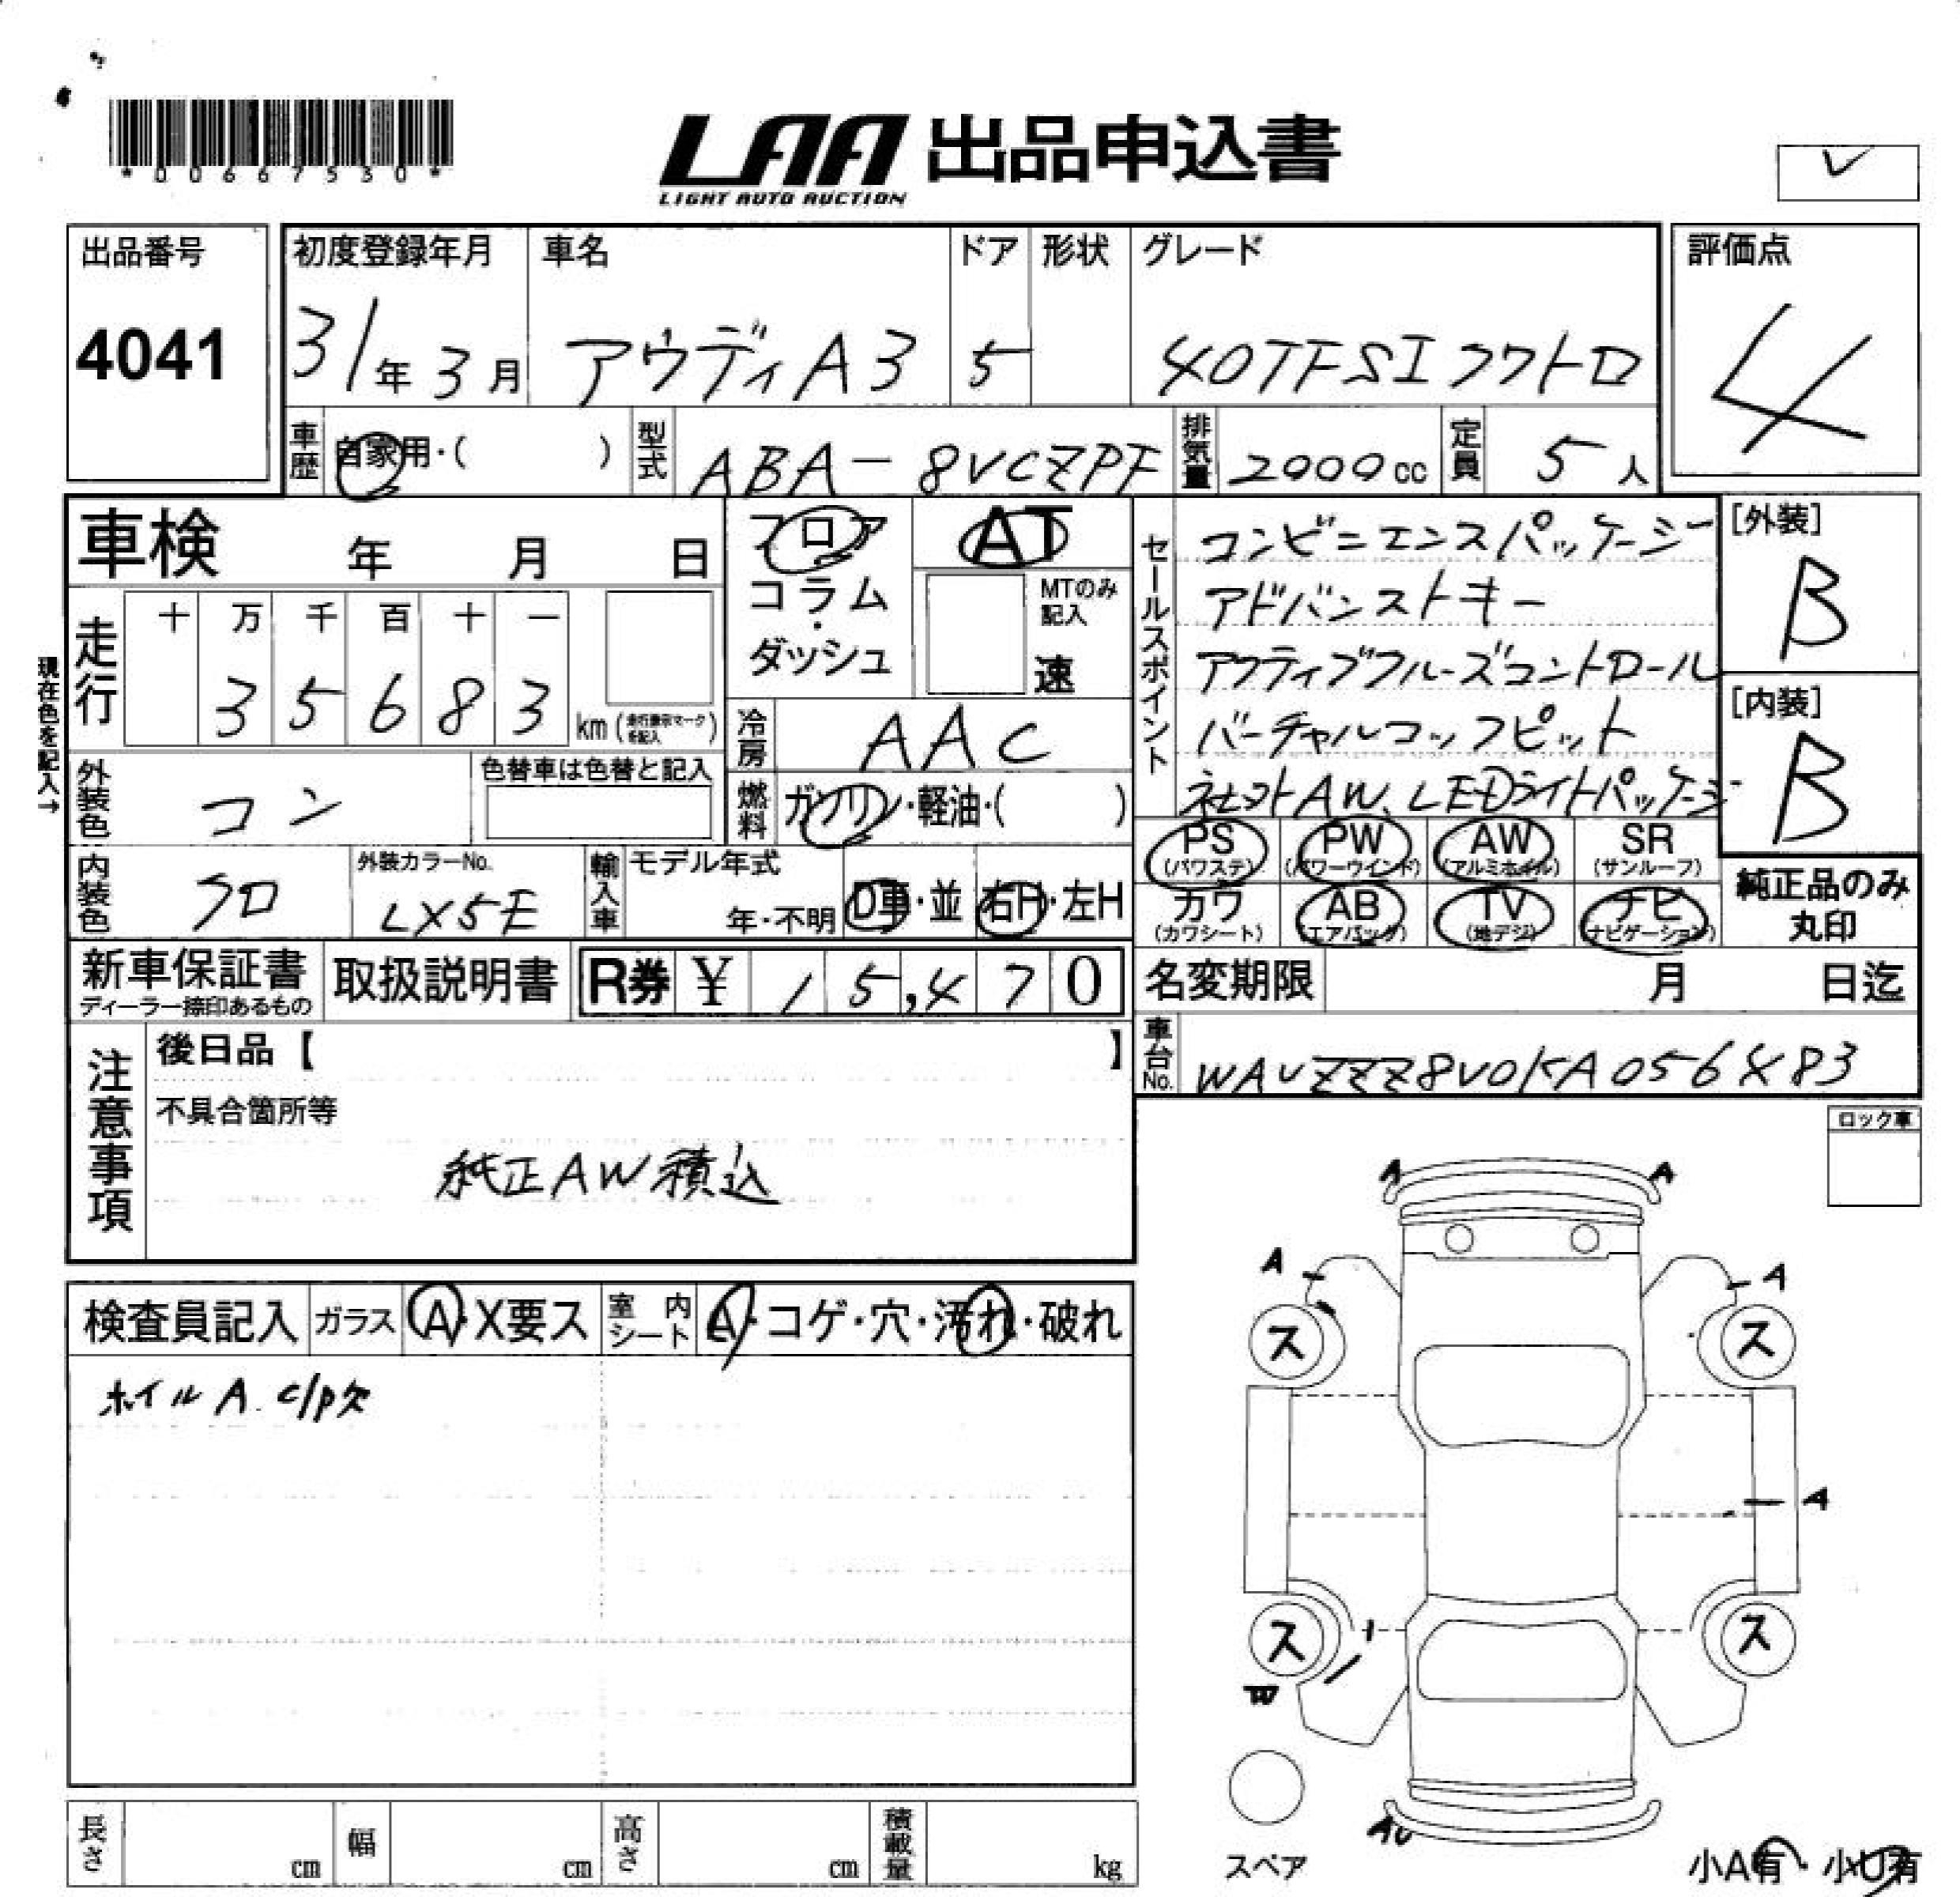 *00667530*
LAA 出品申込書
LIGHT AUTO AUCTION
出品番号
4041
初度登録年月
31年3月
車名
アウディA3
ドア
5
形状
グレード
40TFSIクワトロ
評価点
4
車歴 自家用・( )
型式 ABA-8VCZPF
排気量 2000cc
定員 5人
車検 年 月 日
フロア
コラム・
ダッシュ
AT
MTのみ記入
速
セールスポイント
コンビニエンスパッケージ
アドバンストキー
アクティブクルーズコントロール
バーチャルコックピット
社外AW、LEDライトパッケージ
[外装]
B
[内装]
B
現在色を記入→
走行
十 万 千 百 十 一
3 5 6 8 3 km
冷房 AAC
外装色 コン
色替車は色替と記入
燃料 ガソリン・軽油・( )
内装色 クロ
外装カラーNo.
LX5E
輸入車 モデル年式
年・不明 D車・並 右H・左H
PS (パワステ) PW (パワーウインド) AW (アルミホイル) SR (サンルーフ)
カワ (カワシート) AB (エアバッグ) TV (地デジ) ナビ (ナビゲーション)
純正品のみ丸印
新車保証書
ディーラー捺印あるもの
取扱説明書
R券 ¥ 15,470
名変期限 月 日迄
車台No. WAUZZZ8V0KA056483
注意事項
後日品【 】
不具合箇所等
純正AW積込
ロック車
検査員記入 ガラス A・X要ス 室内シート A・コゲ・穴・汚れ・破れ
ホイルA. c/p欠
A A
A A
ス ス
A
ス ス
W
AU
スペア
小A有・小U有
長さ cm 幅 cm 高さ cm 積載量 kg